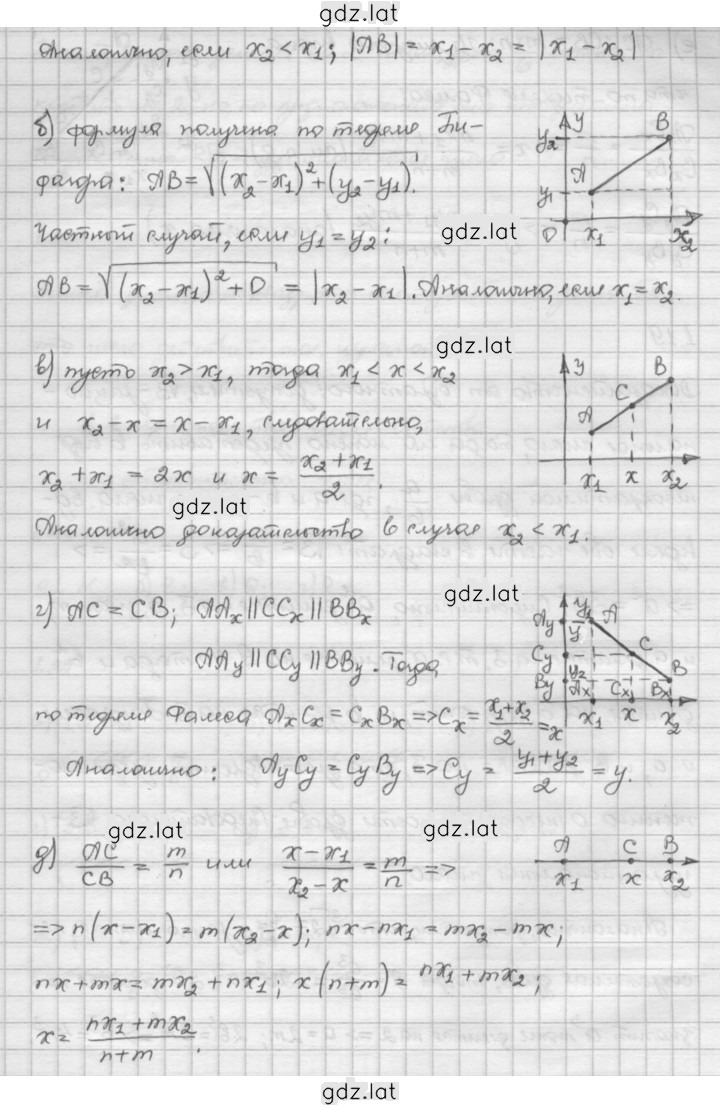 gdz.lat
Аналогично, если x₂ < x₁; |AB| = x₁ - x₂ = |x₁ - x₂|
б) формула получена по теореме Пи-
фагора: AB = √((x₂-x₁)²+(y₂-y₁)).
y₂ y B
A
y₁
0 x₁ x₂
Частный случай, если y₁ = y₂:
gdz.lat
AB = √((x₂-x₁)²+0) = |x₂-x₁|. Аналогично, если x₁ = x₂.
gdz.lat
в) пусть x₂ > x₁, тогда x₁ < x < x₂
и x₂-x = x-x₁, следовательно,
x₂+x₁ = 2x и x = (x₂+x₁)/2.
y B
C
A
x₁ x x₂
gdz.lat
Аналогично доказательство в случае x₂ < x₁.
gdz.lat
г) AC = CB; AAₓ || CCₓ || BBₓ
AAy || CCy || BBy. Тогда
по теореме Фалеса AₓCₓ = CₓBₓ => Cₓ = (x₁+x₂)/2 = x
Аналогично: AyCy = CyBy => Cy = (y₁+y₂)/2 = y.
y₁ A
Ay y
Cy C
y₂ B
By Aₓ Cₓ Bₓ
x₁ x x₂
gdz.lat
gdz.lat
д) AC/CB = m/n или (x-x₁)/(x₂-x) = m/n =>
A C B
x₁ x x₂
=> n(x-x₁) = m(x₂-x); nx-nx₁ = mx₂-mx;
nx+mx = mx₂+nx₁; x(n+m) = nx₁+mx₂;
x = (nx₁+mx₂)/(n+m).
gdz.lat